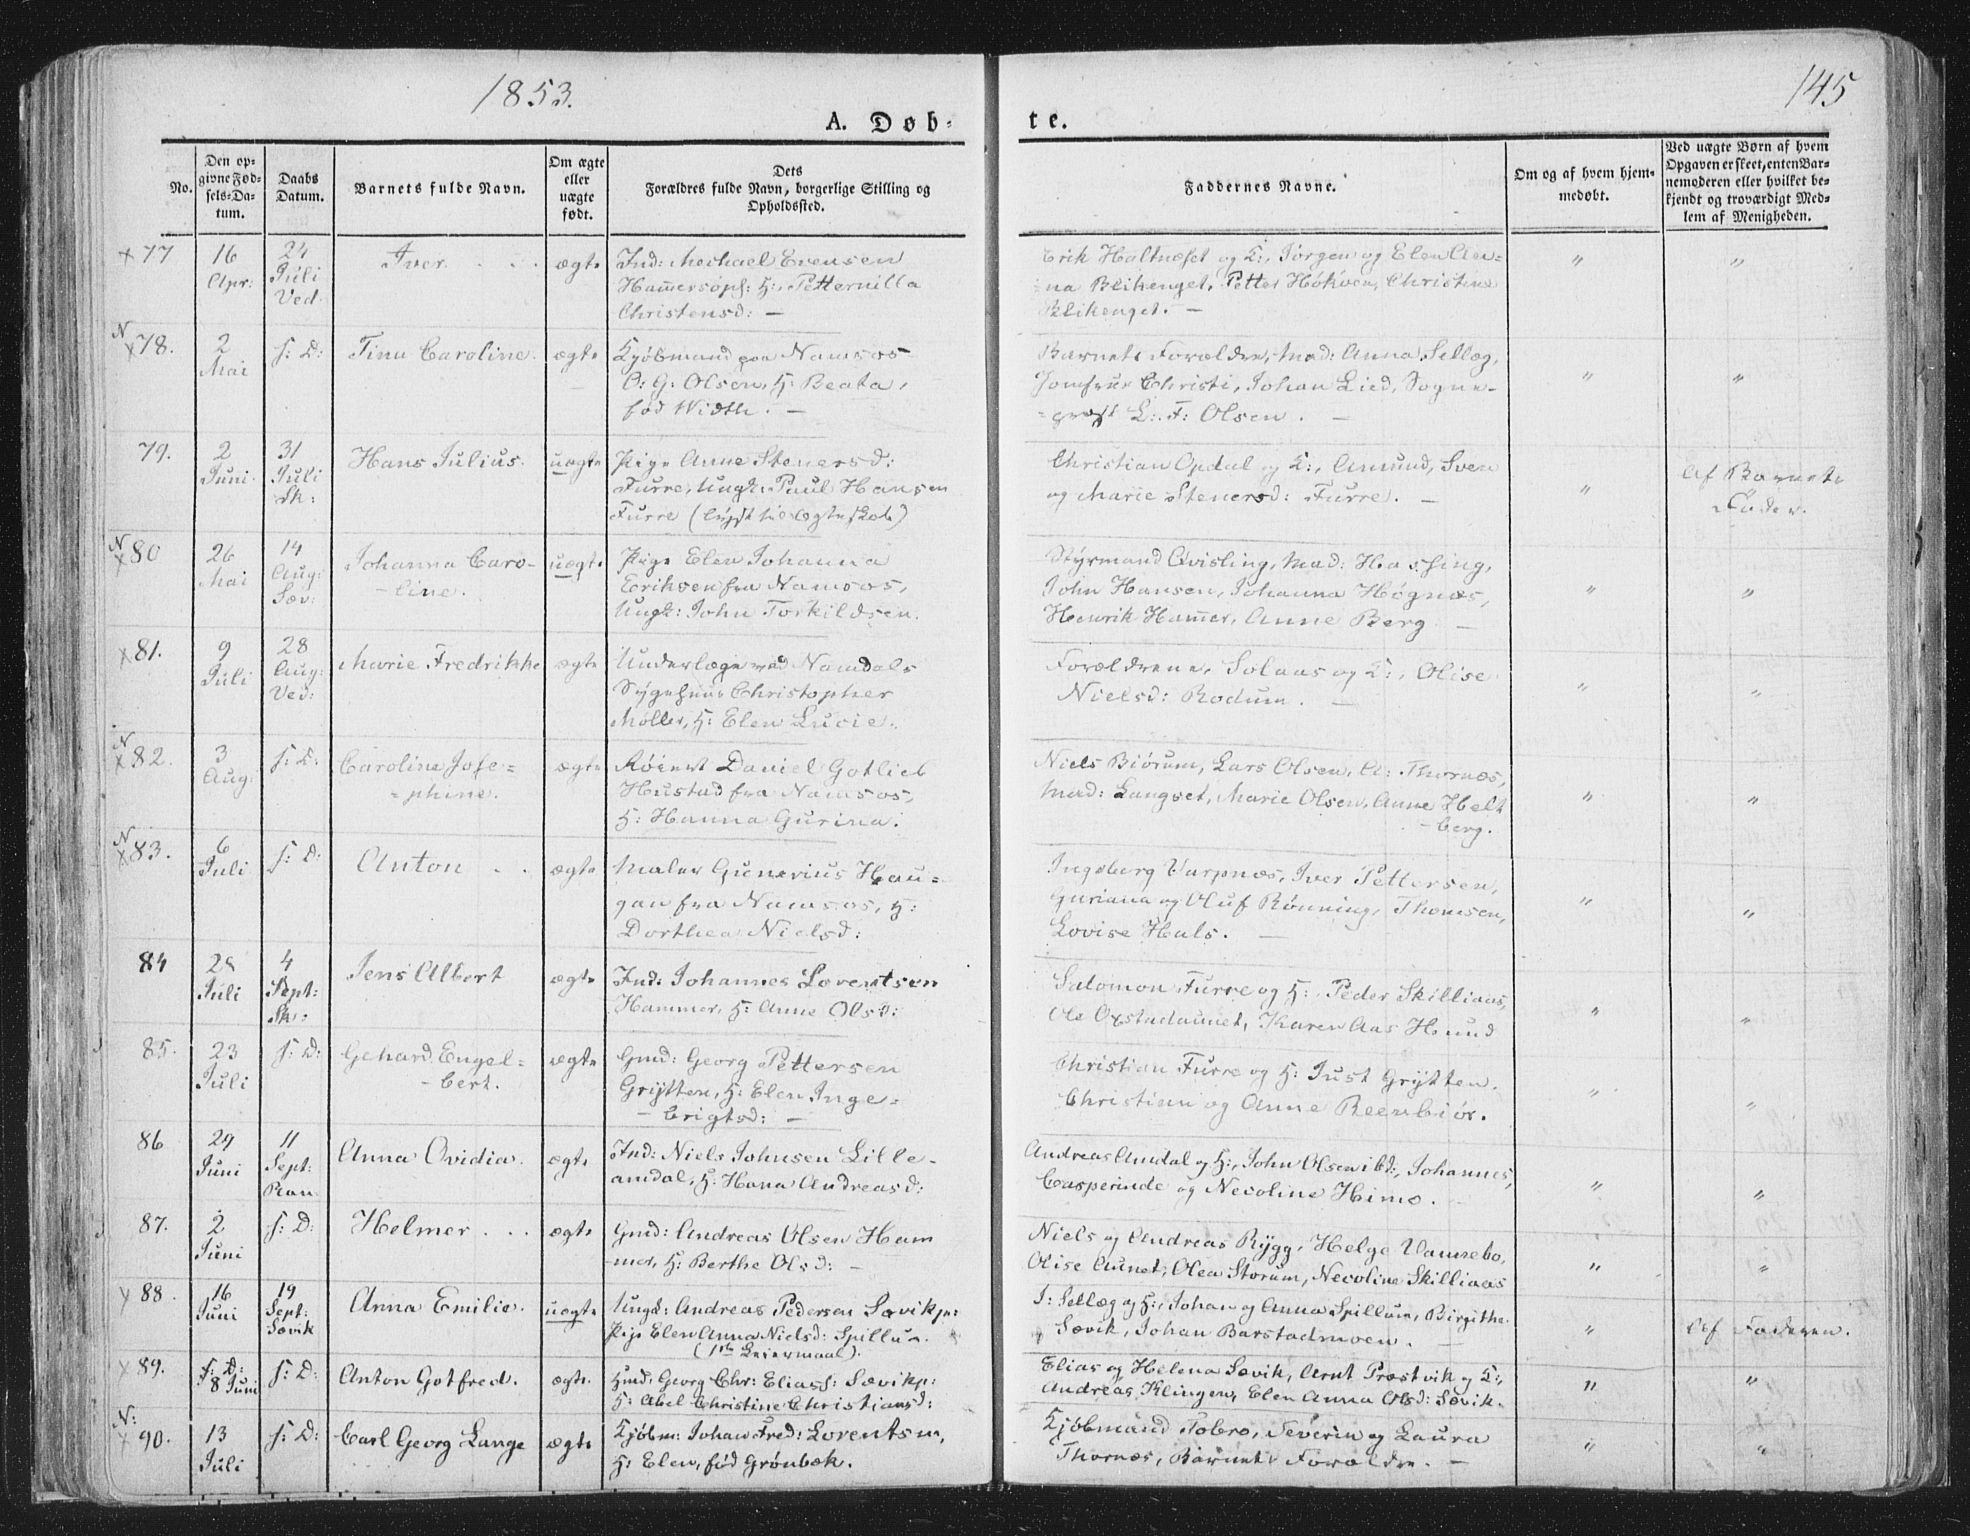 1853.
145
A. Døb-
te.
No.
Den op-
givne Fød-
sels-Da-
tum.
Daabs
Datum.
Barnets fulde Navn.
Om ægte
eller
uægte
født.
Dets
Forældres fulde Navn, borgerlige Stilling og
Opholdssted.
Faddernes Navne.
Om og af hvem hjem-
medøbt.
Ved uægte Børn af hvem
Opgaven er skeet, enten Bar-
nemoderen eller hvilket be-
kjendt og troværdigt Med-
lem af Menigheden.
x 77 16 Apr: 24 Juli Ved. Iver ægte
Ind: Mechael Evensen
Hammersøph: H:, Petternilla
Christensd: —
Erik Haltnæset og K:, Jørgen og Elen An=
na Blikenget, Petter Høknen, Christine
Blikenget. — " "
N x 78. 2 Mai s: D: Tinu Caroline. ægte
Kjøbmand paa Namsos
O: G: Olsen, H: Beata,
fød Width. —
Barnets Forældre, Mad: Anna Sellæg,
Jomfrue Christi, Johan Lied, Sogne-
=præst L: F: Olsen. — " "
79. 2 Juni 31 Juli Sk: Hans Julius. uægte
Pige Anne Stenersd:
Furre, Ungk: Paul Hansen
Furre (lyst til Ægteskab)
Christian Opdal og K:, Amund, Sven
og Marie Stenersd: Furre. — "
Af Barnets
Fader.
N x 80 26 Mai 14 Aug: Sæv: Johanna Caro-
-line. uægte
Pige Elen Johanna
Eriksen fra Namsos,
Ungk: John Torkildsen.
Styrmand Qvisling, Mad: Hassing,
John Hansen, Johanna Høgnæs,
Henrik Hammer, Anne Berg — " "
x 81. 9 Juli 28 Aug: Ved: Marie Fredrikke ægte
Underlæge ved Namdals
Sygehuus Christopher
Møller, H: Elen Lucie.
Forældrene, Solaas og K:, Olise
Nielsd: Rodum. — " "
N x 82. 3 Aug: s: D: Caroline Jose=
=phine. ægte
Røiert Daniel Gotlieb
Hustad fra Namsos,
H: Hanna Gurina.
Niels Biørum, Lars Olsen, A: Thornæs,
Mad: Langset, Marie Olsen, Anne Helt
-berg. " "
N x 83. 6 Juli s: D: Anton ægte
Maler Gunerius Hau=
gan fra Namsos, H:
Dorthea Nielsd:
Ingeborg Varpnæs, Iver Pettersen,
Guriana og Oluf Rønning, Thomsen,
Lovise Hals. — " "
84 28 Juli 4 Sept: Sk: Jens Albert ægte
Ind: Johannes Lorentsen
Hammer, H: Anne Olsd:
Salomon Furre og H:, Peder Skilliaas,
Ole Opstadaunet, Karen Aas Hund " "
85. 23 Juli s: D: Gehard Engel-
-bert. ægte
Gmd: Georg Pettersen
Grytten, H: Elen Inge=
-brigtsd: —
Christian Furre og H: Just Grytten.
Christian og Anne Reenbiør. " "
86 29 Juni 11 Sept: Ran Anna Ovidia. ægte
Ind: Niels Johnsen Lille-
amdal, H: Hana Andreasd:
Andreas Amdal og H:, John Olsen ibd:, Johannes,
Casperinde og Necoline Himo. — " "
87. 2 Juni s: D: Helmer ægte
Gmd: Andreas Olsen Ham
mer, H: Berthe Olsd: —
Niels og Andreas Rygg, Helge Vannebo,
Olise Aunet, Olea Storum, Necoline Skilliaas " "
88. 16 Juni 19 Sept: Sævik Anna Emilie. uægte
Ungk: Andreas Pedersen Sævikp:
Pige Elen Anna Nielsd: Spillum.
(1ste Leiermaal).
J: Sellæg og H:, Johan og Anna Spillum, Birgithe
Sævik, Johan Barstadmoen. — "
Af Faderen.
89. f: D: 8 Juni s: D: Anton Gotfred. ægte
Hmd: Georg Chr: Elias: Sævikp:
H: Abel Christine Christiansd:
Elias og Helena Sævik, Arnt Præstvik og K:,
Andreas Klingen, Elen Anna Olsd: Sævik. " "
N: 90. 13 Juli s: D: Carl Georg Lange ægte
Kjøbm: Johan Fred: Lorentsen,
H: Elen, fød Grønbæk.
Kjøbmand Fobro, Severin og Laura
Thornæs, Barnets Forældre. — " "